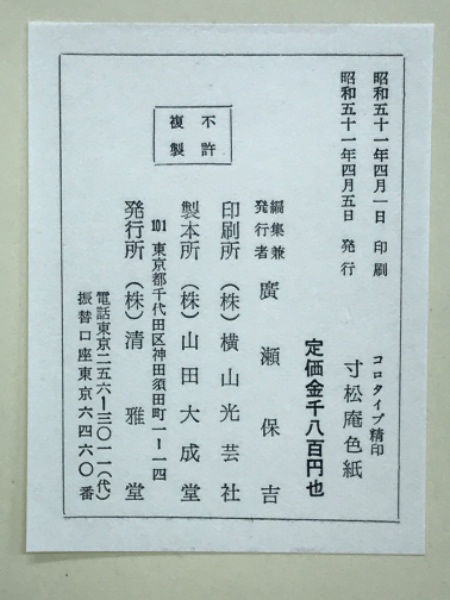 昭和五十一年四月一日 印刷
昭和五十一年四月五日 発行
コロタイプ精印
寸松庵色紙
定価金千八百円也
不許
複製
編集兼
発行者 廣瀬保吉
印刷所 (株)横山光芸社
製本所 (株)山田大成堂
101 東京都千代田区神田須田町一ー一四
発行所 (株)清雅堂
電話東京二五六ー三〇一一(代)
振替口座東京六四六〇番